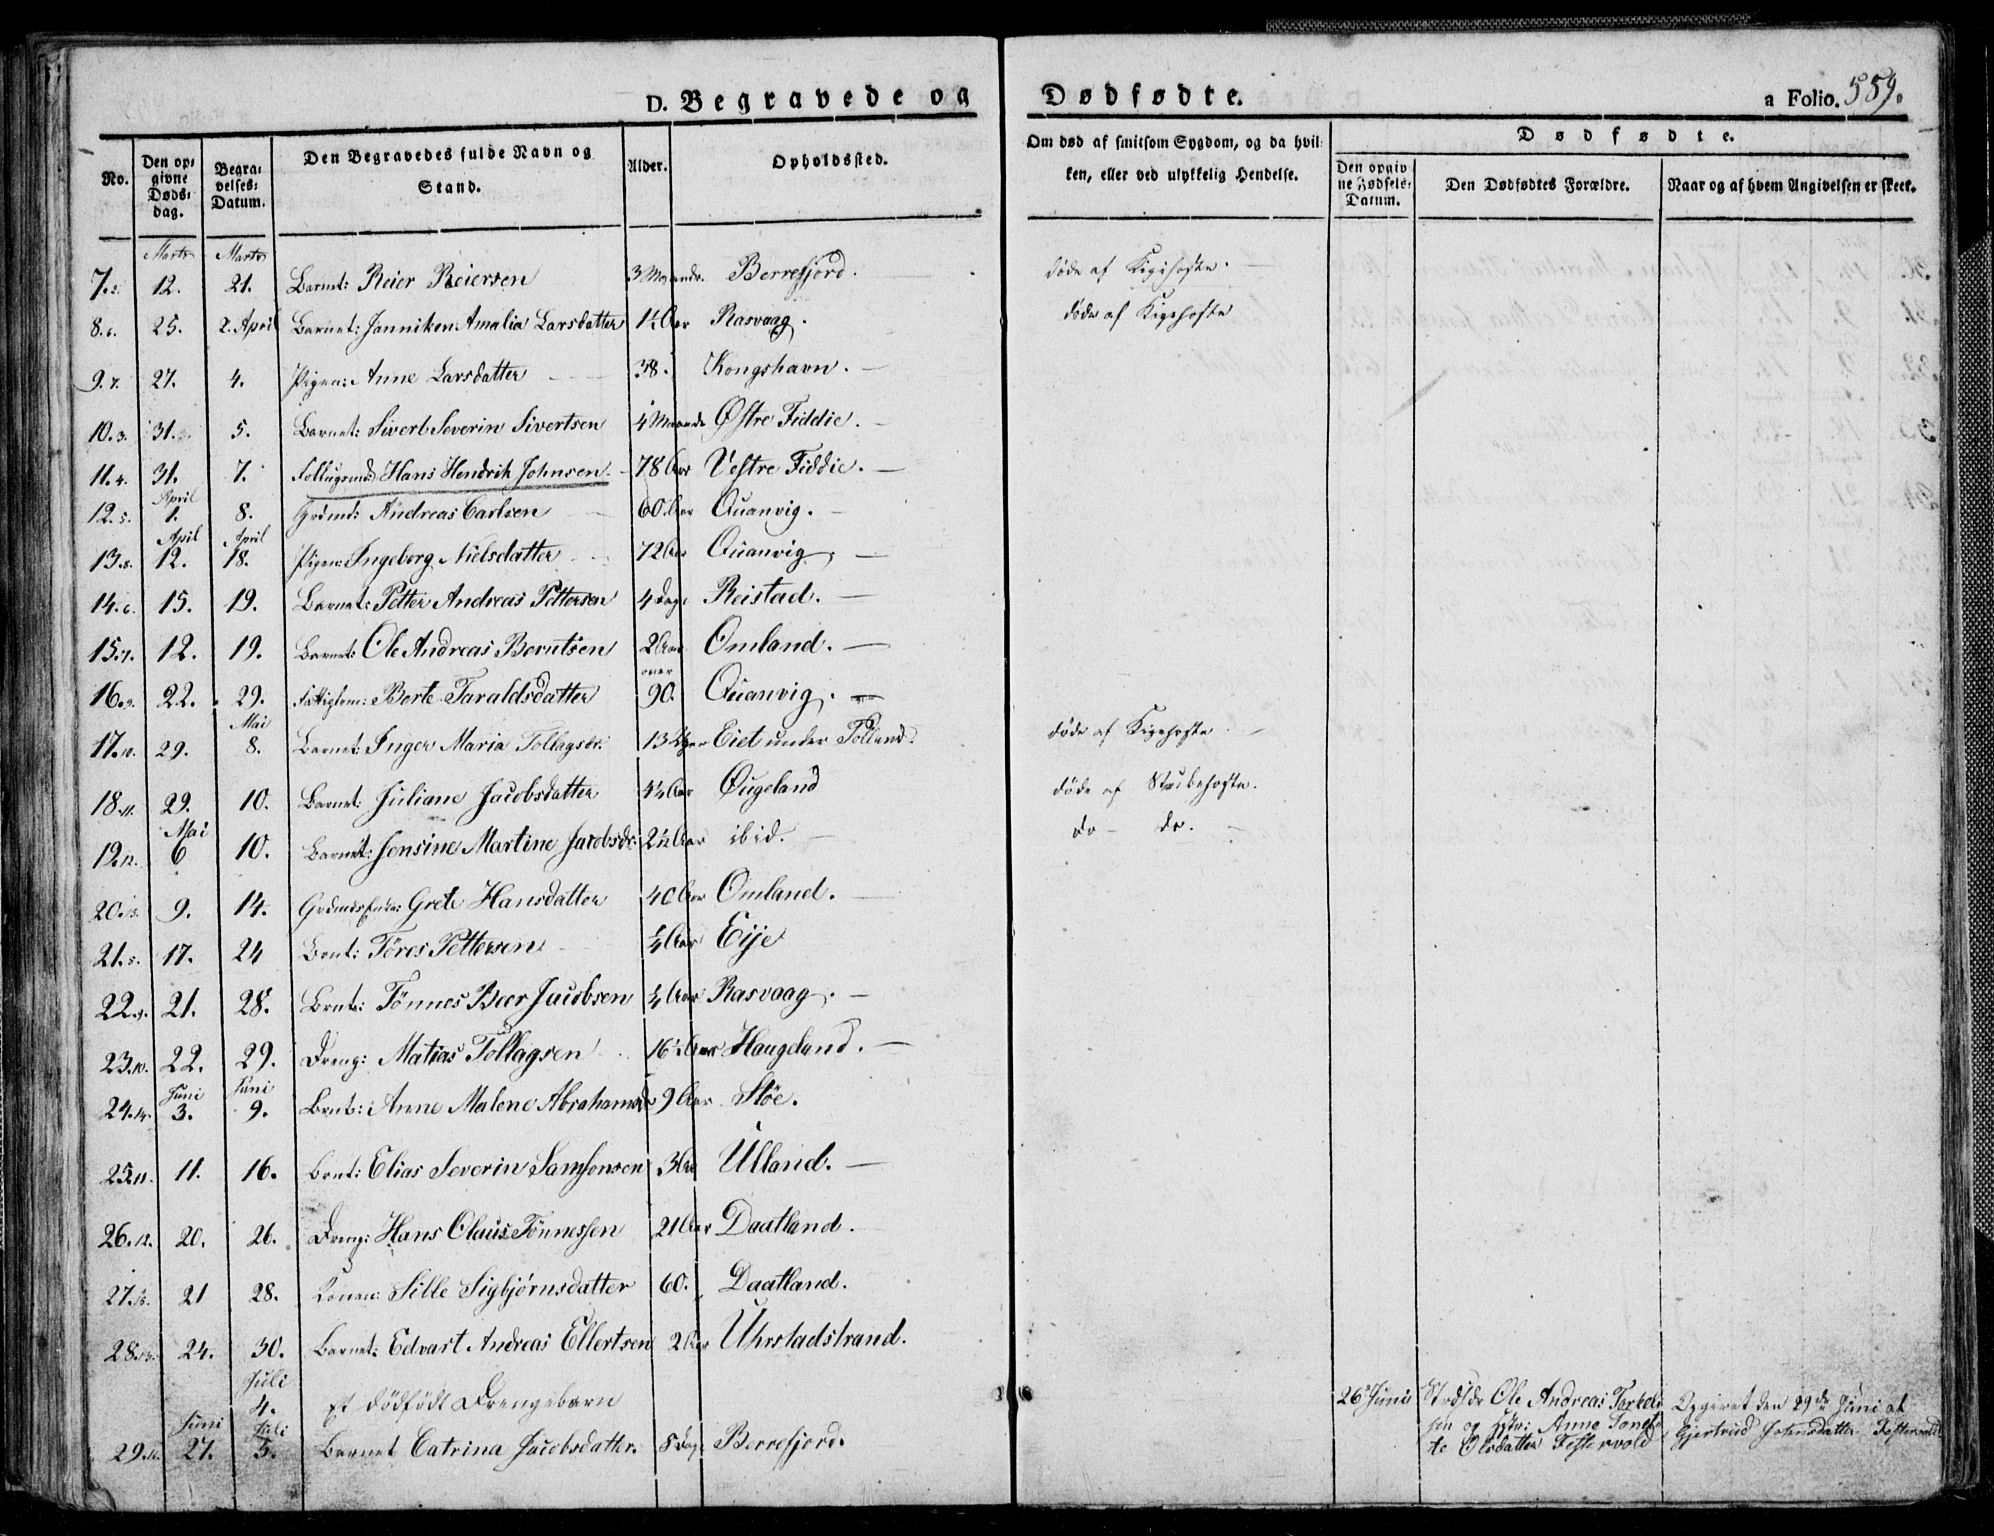 D. Begravede og Dødfødte. a Folio. 559.
No. Den opgivne Dødsdag. Begravelses-Datum. Den Begravedes fulde Navn og Stand. Alder. Opholdssted. Om død af smitsom Sygdom, og da hvilken, eller ved ulykkelig Hendelse. Dødfødte. Den opgivne Fødsels-Datum. Den Dødfødtes Forældre. Naar og af hvem Angivelsen er skeet.
Marts Marts
7. 2. 12. 21. Barnet: Reier Reiersen 3 Maaneder. Berrefjord. døde af Kigehoste.
8. 6. 25. 2. April Barnet: Janniken Amalia Larsdatter 1¼ Aar Rasvaag. døde af Kigehoste
9. 7. 27. 4. Pigen: Anne Larsdatter 38. Kongshavn.
10. 3. 31. 5. Barnet: Sivert Severin Sivertsen 4 Maaneder Østre Fiddie.
11. 4. 31. 7. Hans Hendrik Johnsen 78 Aar Vestre Fiddie.
April
12. 5. 1. 8. Grdmd: Andreas Carlsen 60 Aar Quanvig.
April April
13. 8. 12. 18. Pigen: Ingeborg Nielsdatter 72 Aar Quanvig.
14. 6. 15. 19. Barnet: Petter Andreas Pettersen 4 Dage Reistad.
15. 7. 12. 19. Barnet: Ole Andreas Berntsen 2 Aar Omland.
over
16. 9. 22. 29. Fattiglem: Berte Taraldsdatter 90. Quanvig.
Mai
17. 10. 29. 8. Barnet: Inger Maria Tollagsdr. 13 Uger Eiet under Tolland. døde af Kigehoste
18. 11. 29. 10. Barnet: Juliane Jacobsdatter 4½ Aar Øugeland døde af Strubehoste.
Mai
19. 12. 6 10. Barnet: Jensine Martine Jacobsdr: 2½ Aar ibid. do do.
20. 13. 9. 14. Grdmds Enke: Grete Hansdatter 40 Aar Omland.
21. 8. 17. 24 Brnt: Töres Pettersen ¼ Aar Eije
22. 9. 21. 28. Brnt: Tönnes Beer Jacobsen ¼ Aar Rasvaag.
23. 10. 22. 29. Dreng: Matias Tollagsen 16½ Aar Haugeland.
Juni Juni
24. 14. 3. 9. Brnt: Anne Malene Abrahamsdr 9 Aar Støe.
25. 11. 11. 16. Brnt: Elias Severin Samsonsen 3 Aar Ulland.
26. 12. 20. 26. Dreng: Hans Olaus Tönnessen 21 Aar Daatland.
27. 15. 21 28. Konen: Sille Sigbjörnsdatter 60. Daatland.
28. 13. 24. 30. Barnet: Edvart Andreas Ellertsen 2 Aar Uhrstadstrand.
Juli
4. Et dödfödt Drengebarn 26 Juni Strdsdr Ole Andreas Torkelsen og Hstr: Anne Tonette Olsdatter Festervold Opgivet den 29de Juni af Gjertrud Johnsdatter Festervold
Juni Juli
29. 16. 27. 5. Barnet Catrina Jacobsdatter. 8 Dage Berrefjord.